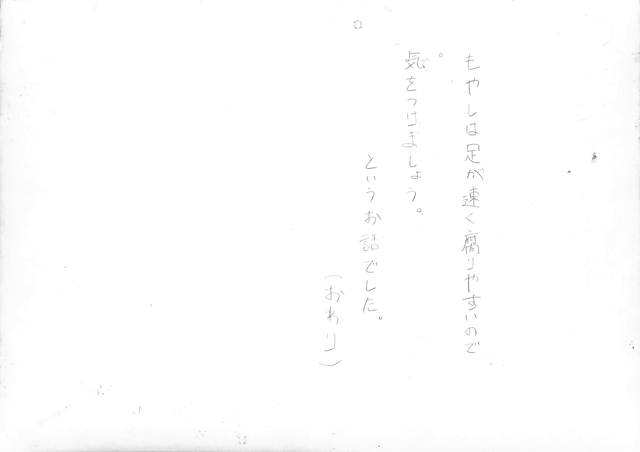 もやしは足が速く腐りやすいので
気をつけましょう。
というお話でした。
(おわり)